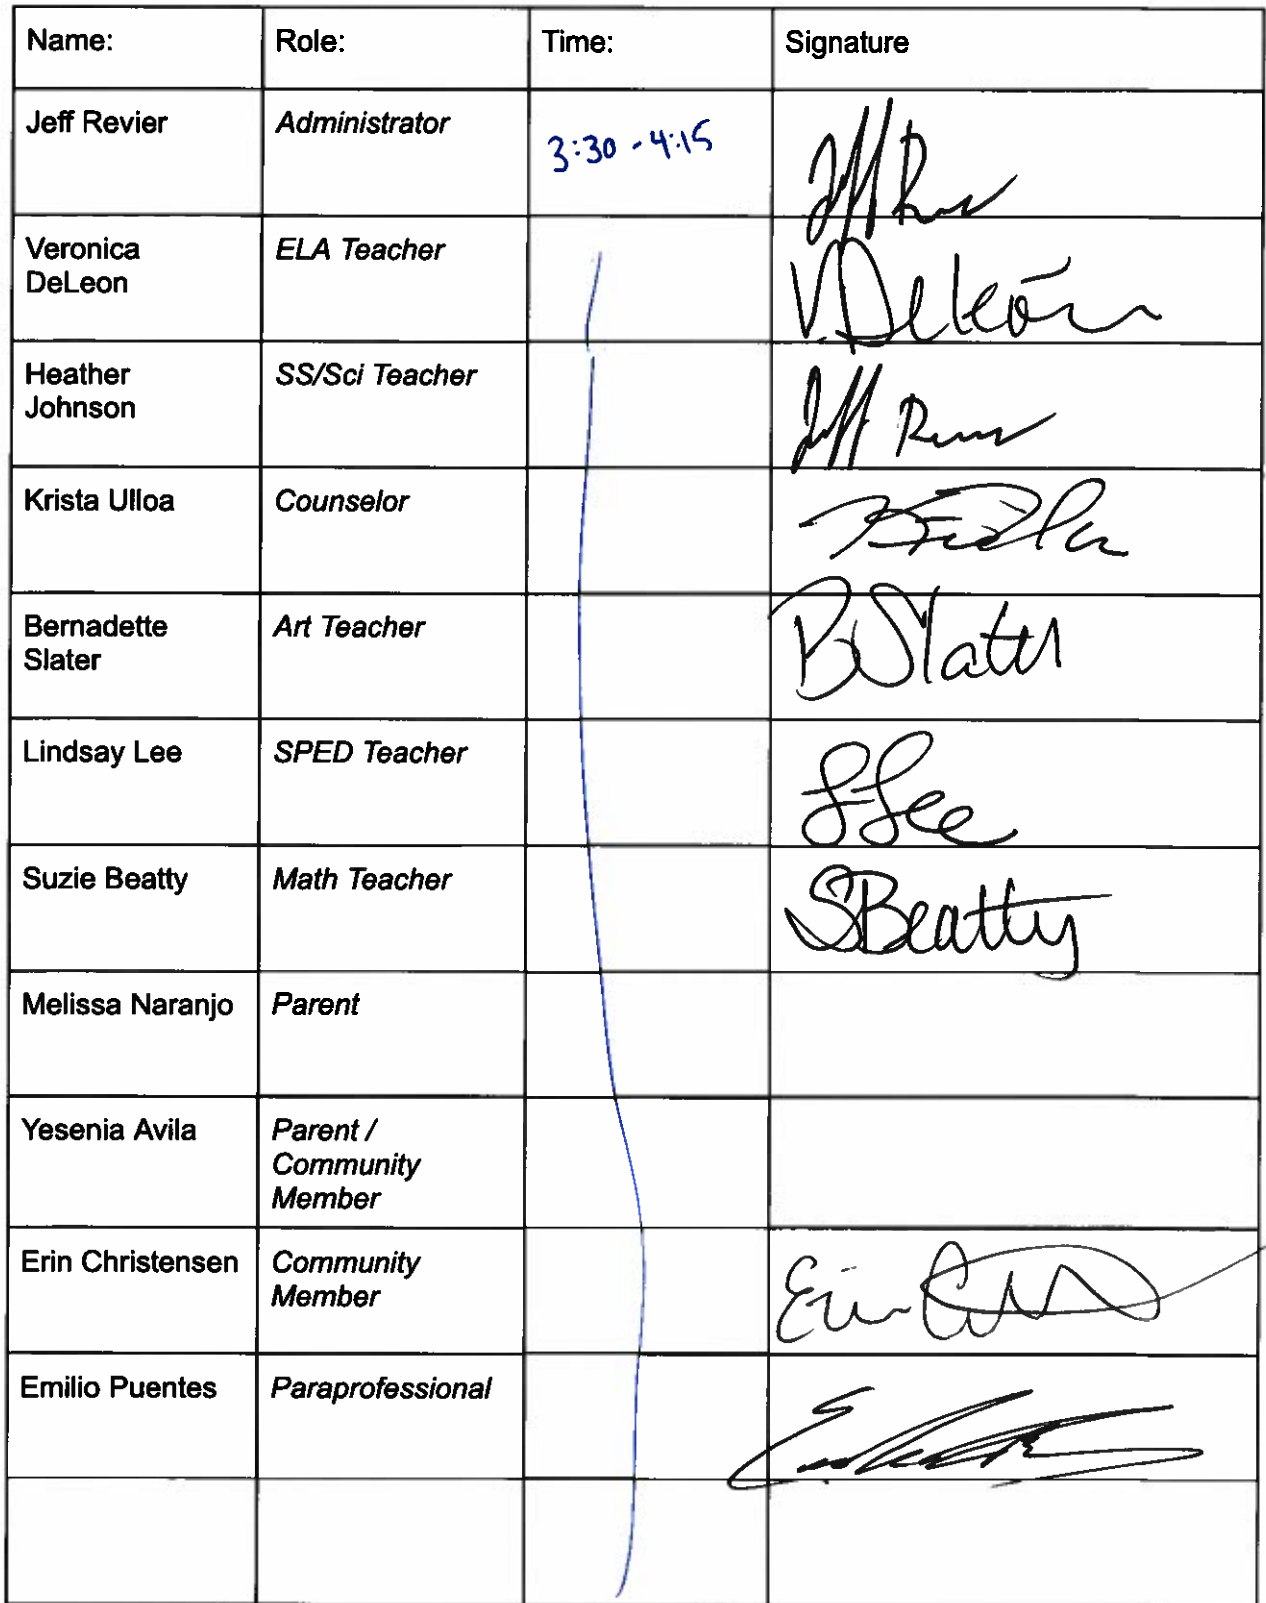 Name: Role: Time: Signature
Jeff Revier Administrator 3:30 - 4:15 Jeff
Veronica ELA Teacher V. DeLeón
DeLeon
Heather SS/Sci Teacher Jeff
Johnson
Krista Ulloa Counselor
Bernadette Art Teacher B Slater
Slater
Lindsay Lee SPED Teacher L Lee
Suzie Beatty Math Teacher SBeatty
Melissa Naranjo Parent
Yesenia Avila Parent /
Community
Member
Erin Christensen Community Erin
Member
Emilio Puentes Paraprofessional